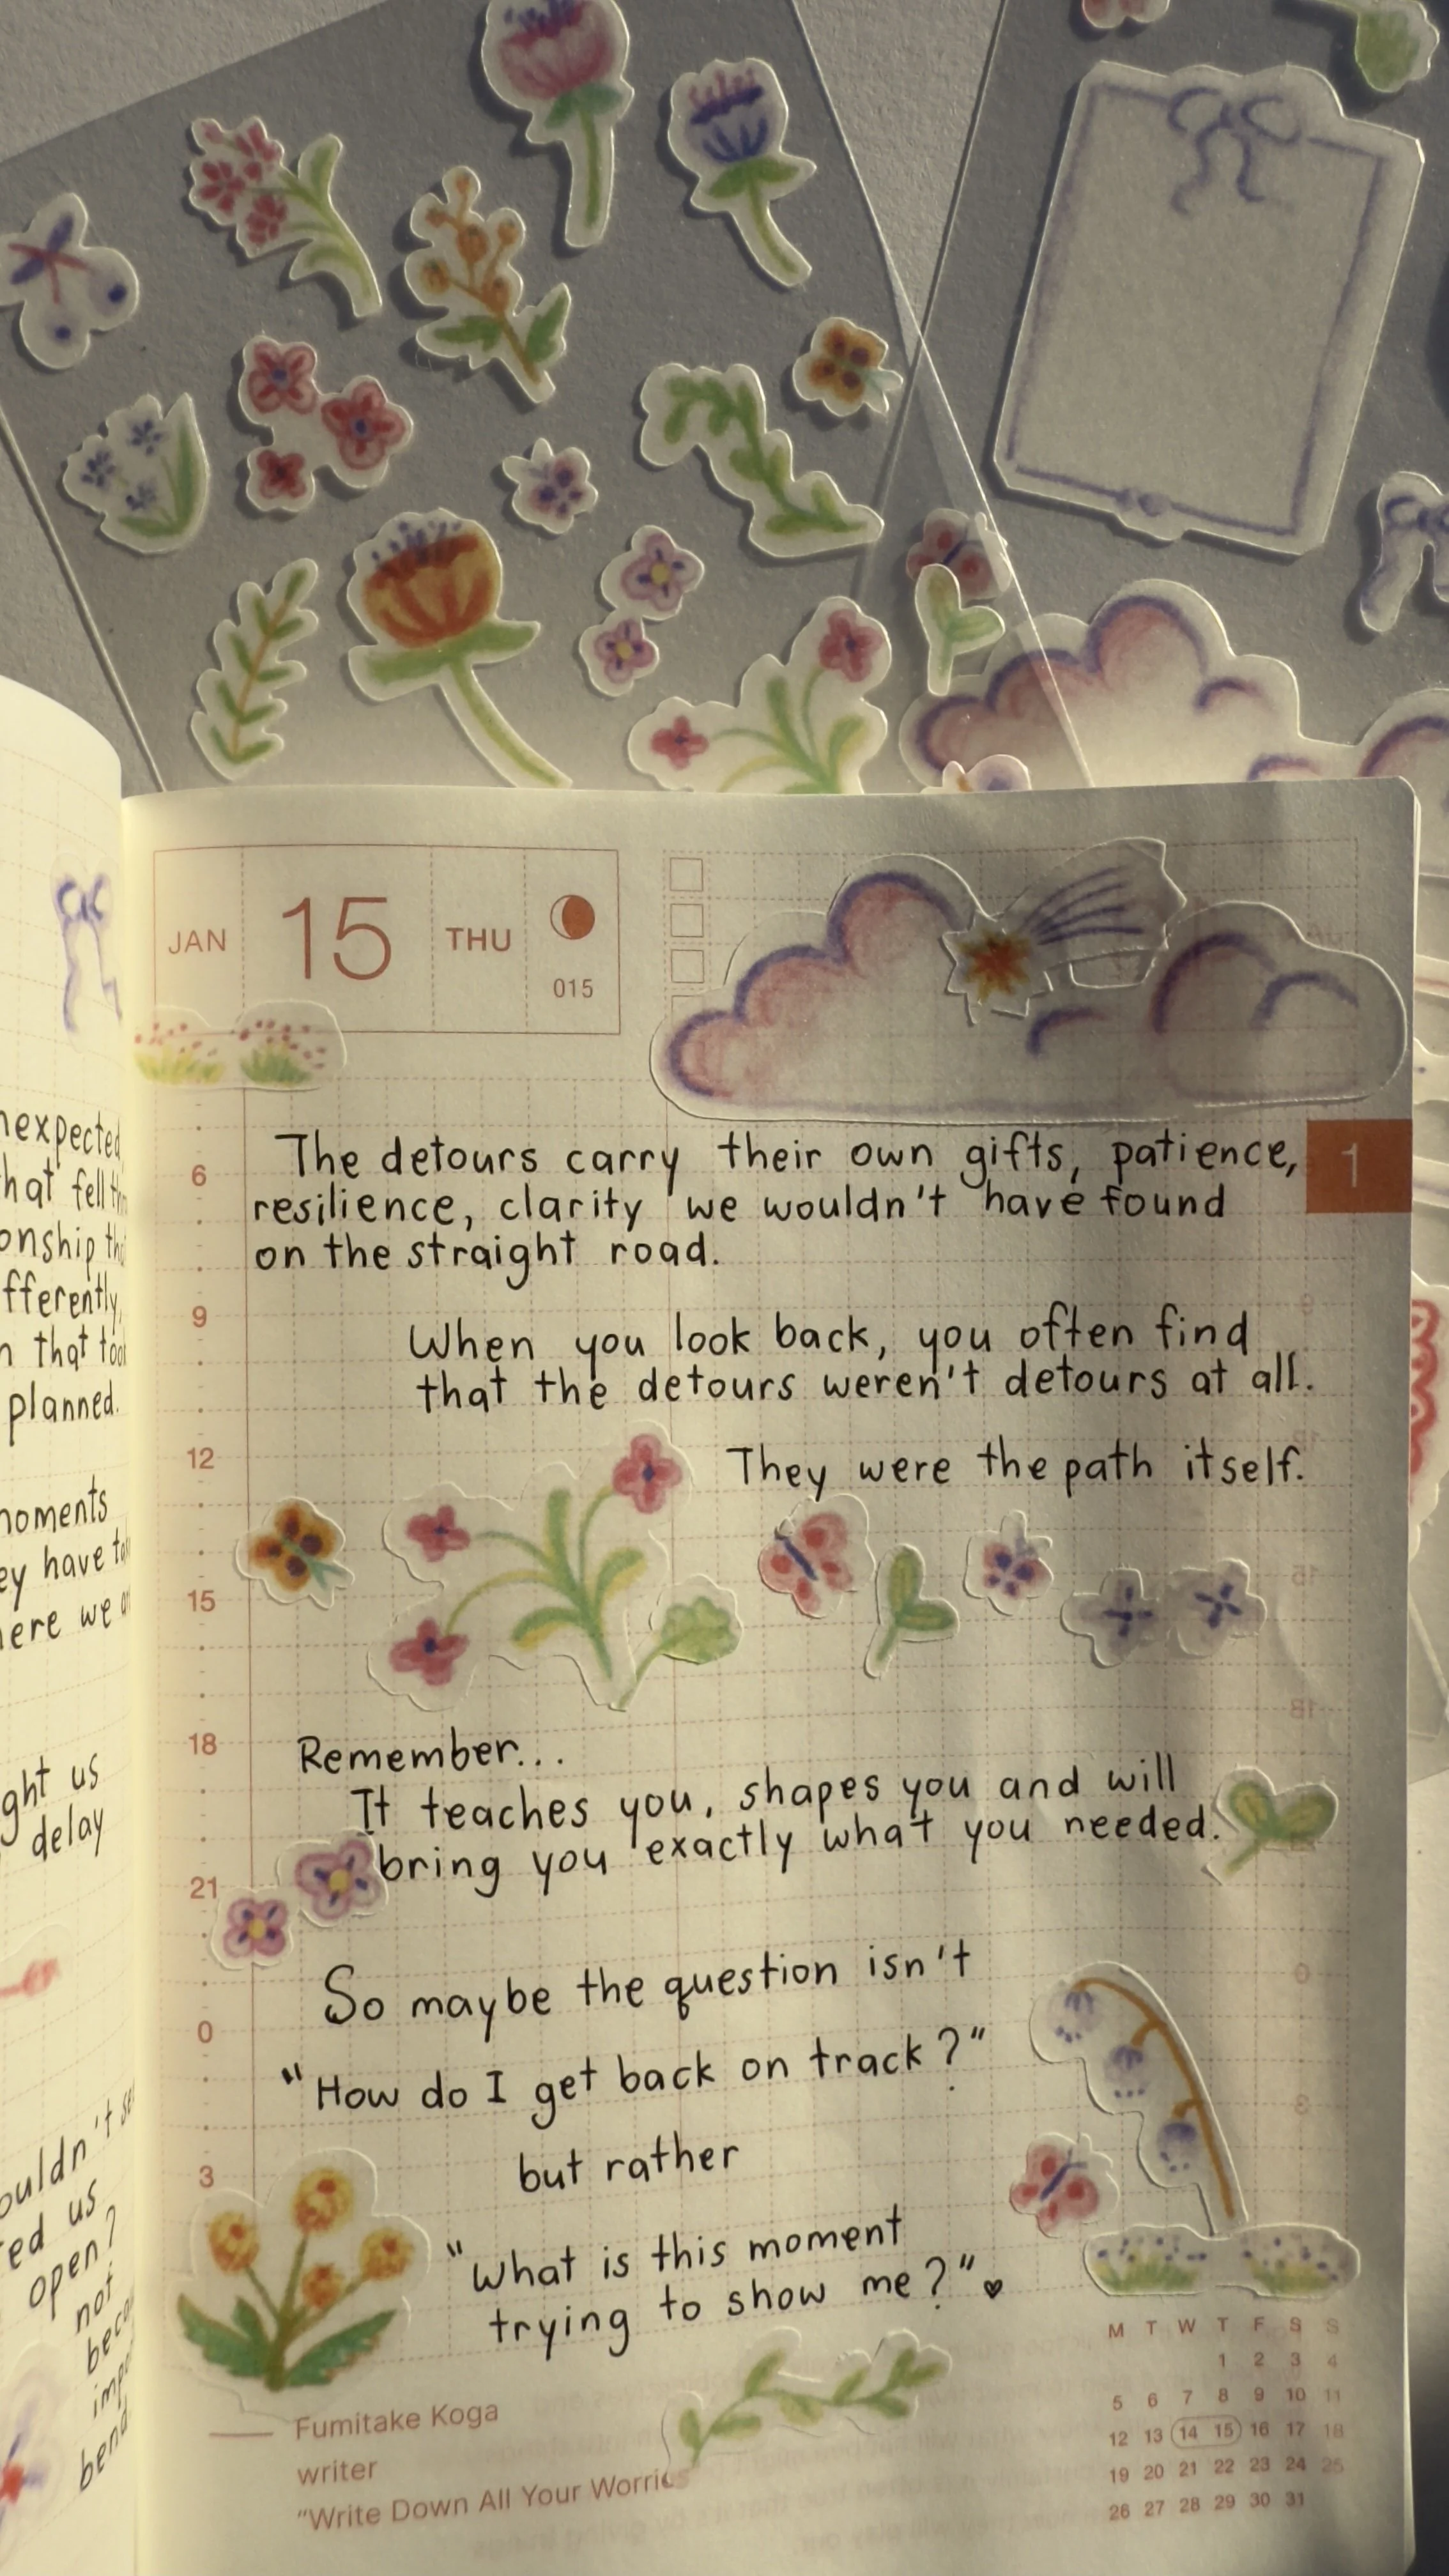 nexpected
hat fell
onship
fferently
n that
planned.
moments
ey have
here we
ght us
delay
ouldn't
ed us
open?
not
JAN 15 THU
015
1
The detours carry their own gifts, patience,
resilience, clarity we wouldn't have found
on the straight road.
When you look back, you often find
that the detours weren't detours at all.
They were the path itself.
Remember...
It teaches you, shapes you and will
bring you exactly what you needed.
So maybe the question isn't
"How do I get back on track?"
but rather
"What is this moment
trying to show me?"
6
9
12
15
18
21
0
3
Fumitake Koga
writer
"Write Down All Your Worries
M T W T F S S
1 2 3 4
5 6 7 8 9 10 11
12 13 14 15 16 17 18
19 20 21 22 23 24 25
26 27 28 29 30 31